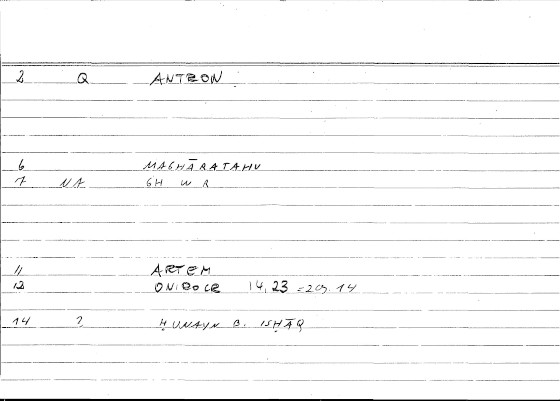 2 Q ANTRON
6 MAGHĀRATAHU
7 NA GH W R
11 ARTEM
12 ONIROCR 14,23 = 209.14
14 ? ḤUNAYN B. ISḤĀQ